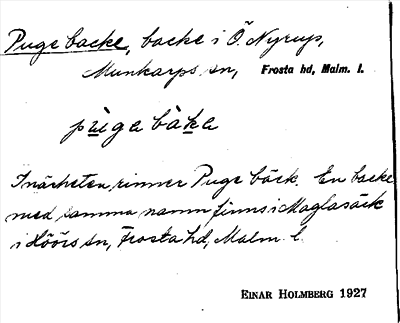 Puge backe, backe i Ö. Nyrup,
Munkarps sn, Frosta hd, Malm. l.
pùga bàka
I närheten rinner Puge bäck. En backe
med samma namn finns i Maglasäck
i Höörs sn, Frosta hd, Malm. l.
EINAR HOLMBERG 1927